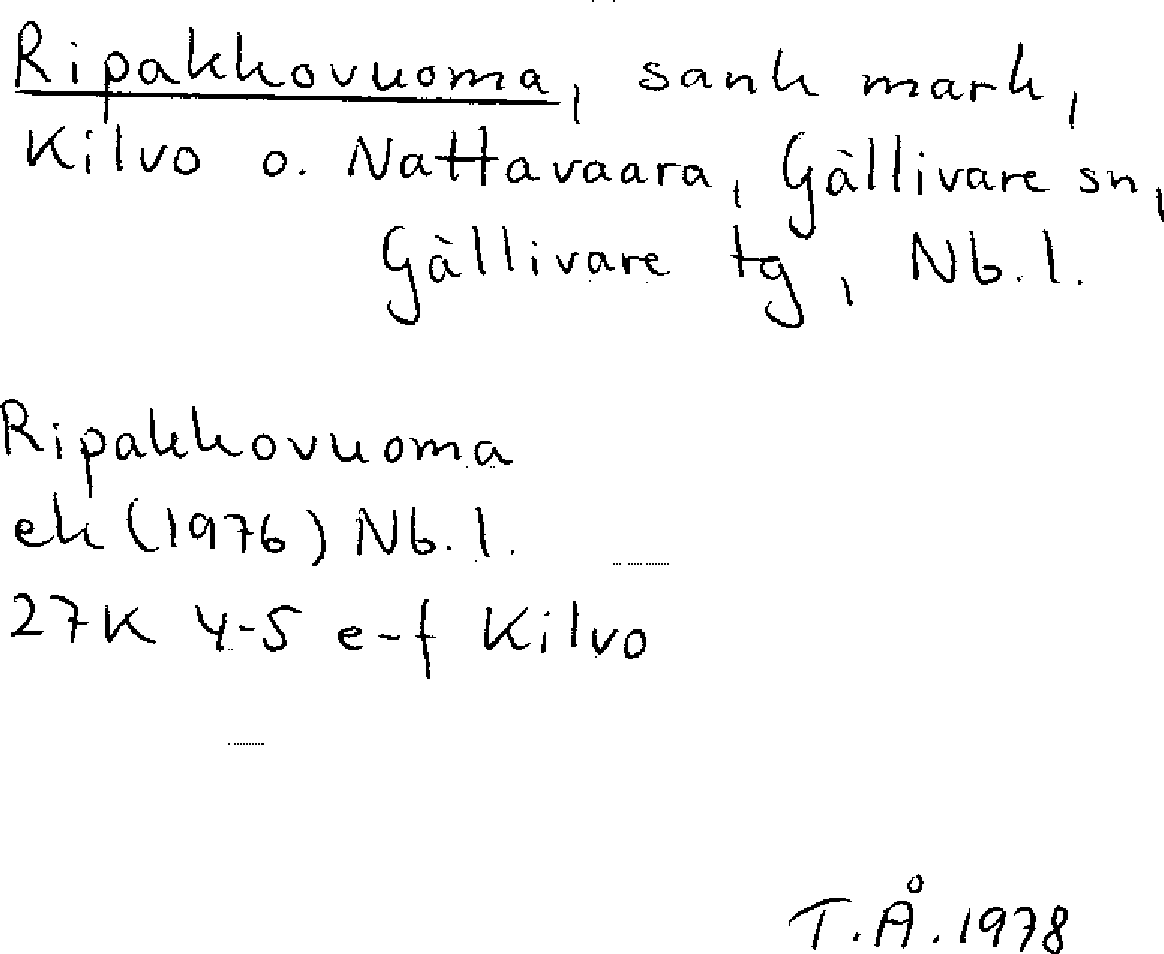 Ripakkovuoma, sank mark,
Kilvo o. Nattavaara, Gällivare sn,
Gällivare tg, Nb.l.
Ripakkovuoma
ek (1976) Nb.l.
27K 4-5 e-f Kilvo
T.Å. 1978